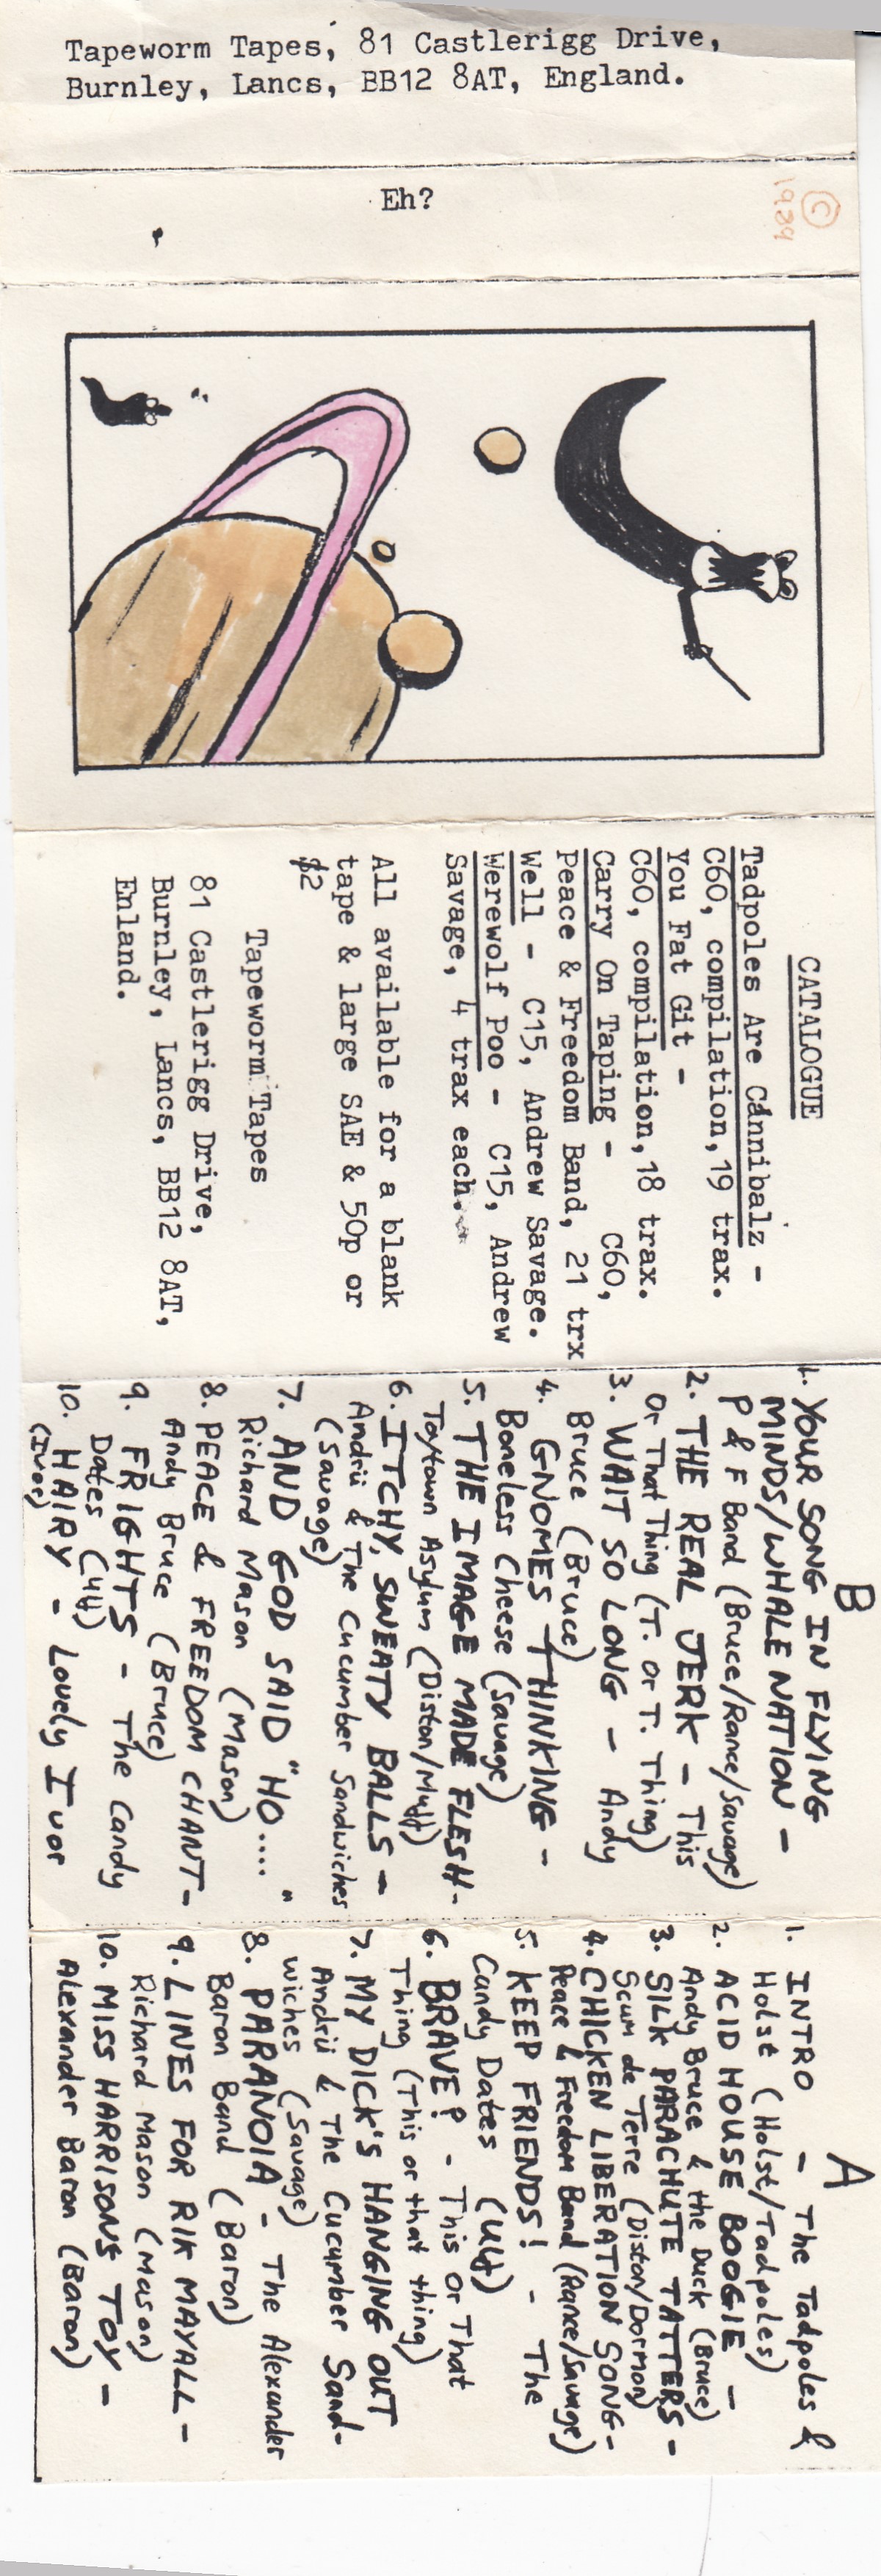 Tapeworm Tapes, 81 Castlerigg Drive,
Burnley, Lancs, BB12 8AT, England.
Eh?
© 1989
CATALOGUE
Tadpoles Are Cannibalz -
C60, compilation, 19 trax.
You Fat Git -
C60, compilation, 18 trax.
Carry On Taping - C60,
Peace & Freedom Band, 21 trx
Well - C15, Andrew Savage.
Werewolf Poo - C15, Andrew
Savage, 4 trax each.
All available for a blank
tape & large SAE & 50p or
$2
Tapeworm Tapes
81 Castlerigg Drive,
Burnley, Lancs, BB12 8AT,
Enland.
B
1. YOUR SONG IN FLYING
MINDS/WHALE NATION -
P & F Band (Bruce/Rance/Savage)
2. THE REAL JERK - This
Or That Thing (T. or T. Thing)
3. WAIT SO LONG - Andy
Bruce (Bruce)
4. GNOMES THINKING -
Boneless Cheese (Savage)
5. THE IMAGE MADE FLESH -
Toytown Asylum (Diston/Muff)
6. ITCHY, SWEATY BALLS -
Andrü & The Cucumber Sandwiches
(Savage)
7. AND GOD SAID "HO...."
Richard Mason (Mason)
8. PEACE & FREEDOM CHANT -
Andy Bruce (Bruce)
9. FRIGHTS - The Candy
Dates (Uff)
10. HAIRY - Lovely Ivor
(Ivor)
A
1. INTRO - The Tadpoles &
Holst (Holst/Tadpoles)
2. ACID HOUSE BOOGIE -
Andy Bruce & the Duck (Bruce)
3. SILK PARACHUTE TATTERS -
Scum de Terre (Diston/Dormon)
4. CHICKEN LIBERATION SONG -
Peace & Freedom Band (Rance/Savage)
5. KEEP FRIENDS! - The
Candy Dates (Uff)
6. BRAVE? - This Or That
Thing (This or that thing)
7. MY DICK'S HANGING OUT
Andrü & The Cucumber Sand-
wiches (Savage)
8. PARANOIA - The Alexander
Baron Band (Baron)
9. LINES FOR RIK MAYALL -
Richard Mason (Mason)
10. MISS HARRISONS TOY -
Alexander Baron (Baron)